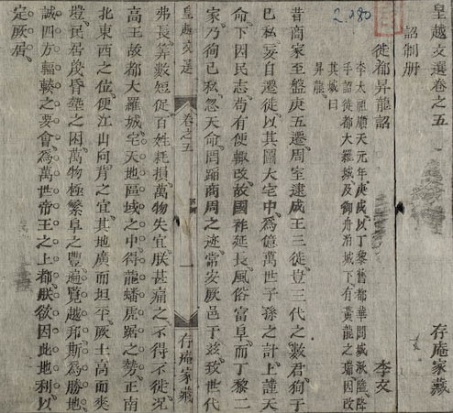 皇越文選卷之五 存庵家藏
詔制册
徙都昇龍詔 李文
李太祖順天元年庚戌以丁黎舊都華閭城湫隘降
手詔徙都大羅城及御舟泊城下有黃龍之瑞因改
其城曰
昇龍
昔商家至盤庚五遷周室逮成王三徙豈三代之數君徇于
己私妄自遷徙以其圖大宅中為億萬世子孫之計上謹天
命下因民志苟有便輒改故國祚延長風俗富阜而丁黎二
家乃徇己私忽天命罔蹈商周之迹常安厥邑于茲致世代
皇越文選 卷之五 一 存庵家藏
弗長算數短促百姓耗損萬物失宜朕甚痛之不得不徙况
高王故都大羅城宅天地區域之中得龍蟠虎踞之勢正南
北東西之位便江山向背之宜其地廣而坦平厥土高而爽
塏民居蔑昏墊之困萬物極繁阜之豐遍覽越邦斯為勝地
誠四方輻輳之要會為萬世帝王之上都朕欲因此地利以
定厥居